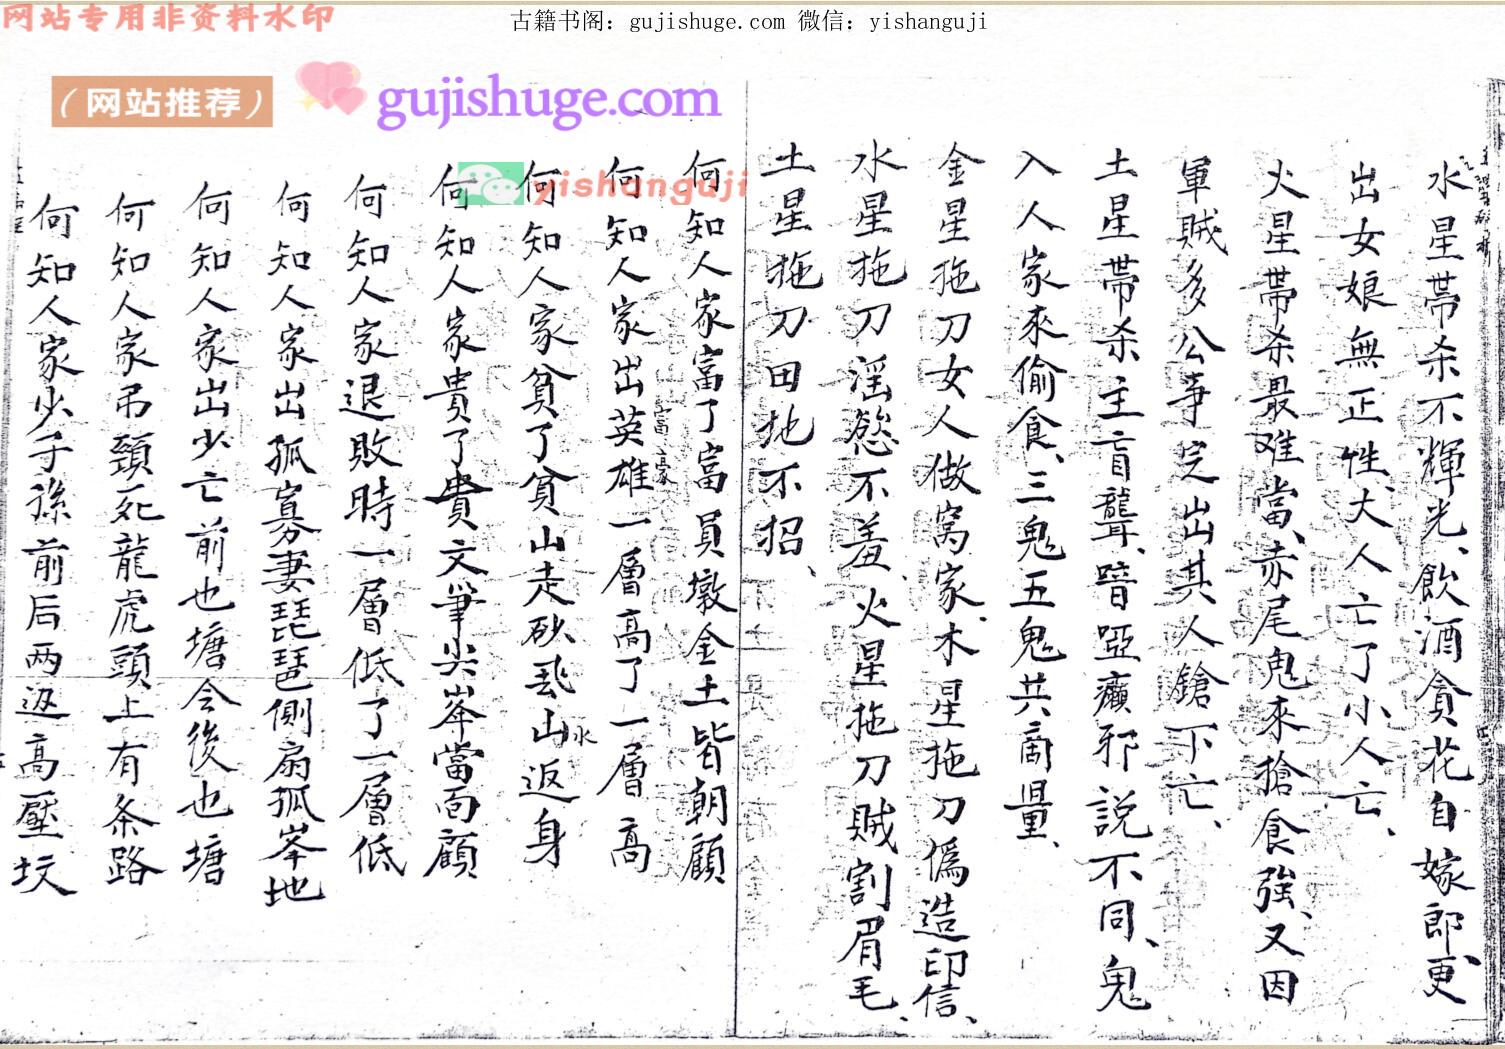 网站专用非资料水印
古籍书阁：gujishuge.com 微信：yishanguji
（网站推荐）
gujishuge.com
yishanguji
水星帶杀不輝光、飲酒貪花自嫁郎、更
出女娘無正性、大人亡了小人亡、
火星帶杀最难當、赤尾鬼來搶食強、又因
軍賊多公事、定出其人鎗下亡、
土星帶杀主盲聾、瘖啞癲邪説不同、鬼
入人家來偷食、三鬼五鬼共商量、
金星拖刀女人做窝家、木星拖刀偽造印信、
水星拖刀淫慾不羞、火星拖刀賊割眉毛、
土星拖刀田地不招、
何知人家富了富員墩金土皆朝顧
何知人家出英雄一層高了一層高
富豪
何知人家貧了貧山走砂飛山返身
水
何知人家貴了貴文筆尖峯當面顧
何知人家退敗時一層低了一層低
何知人家出孤寡妻琵琶侧扇孤峯地
何知人家出少亡前也塘今後也塘
何知人家弔頸死龍虎頭上有条路
何知人家少子孫前后两返高壓坟